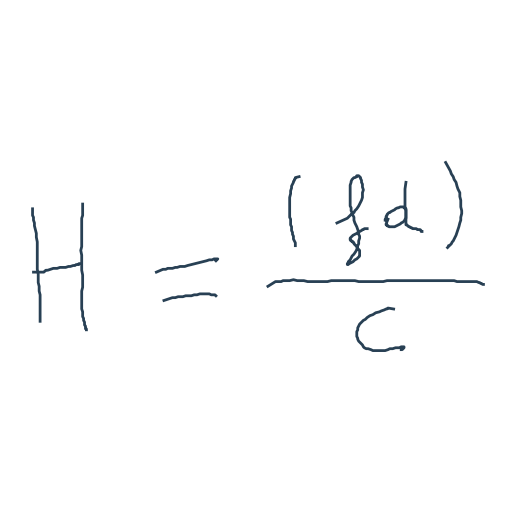 H = \frac{(fd)}{c}